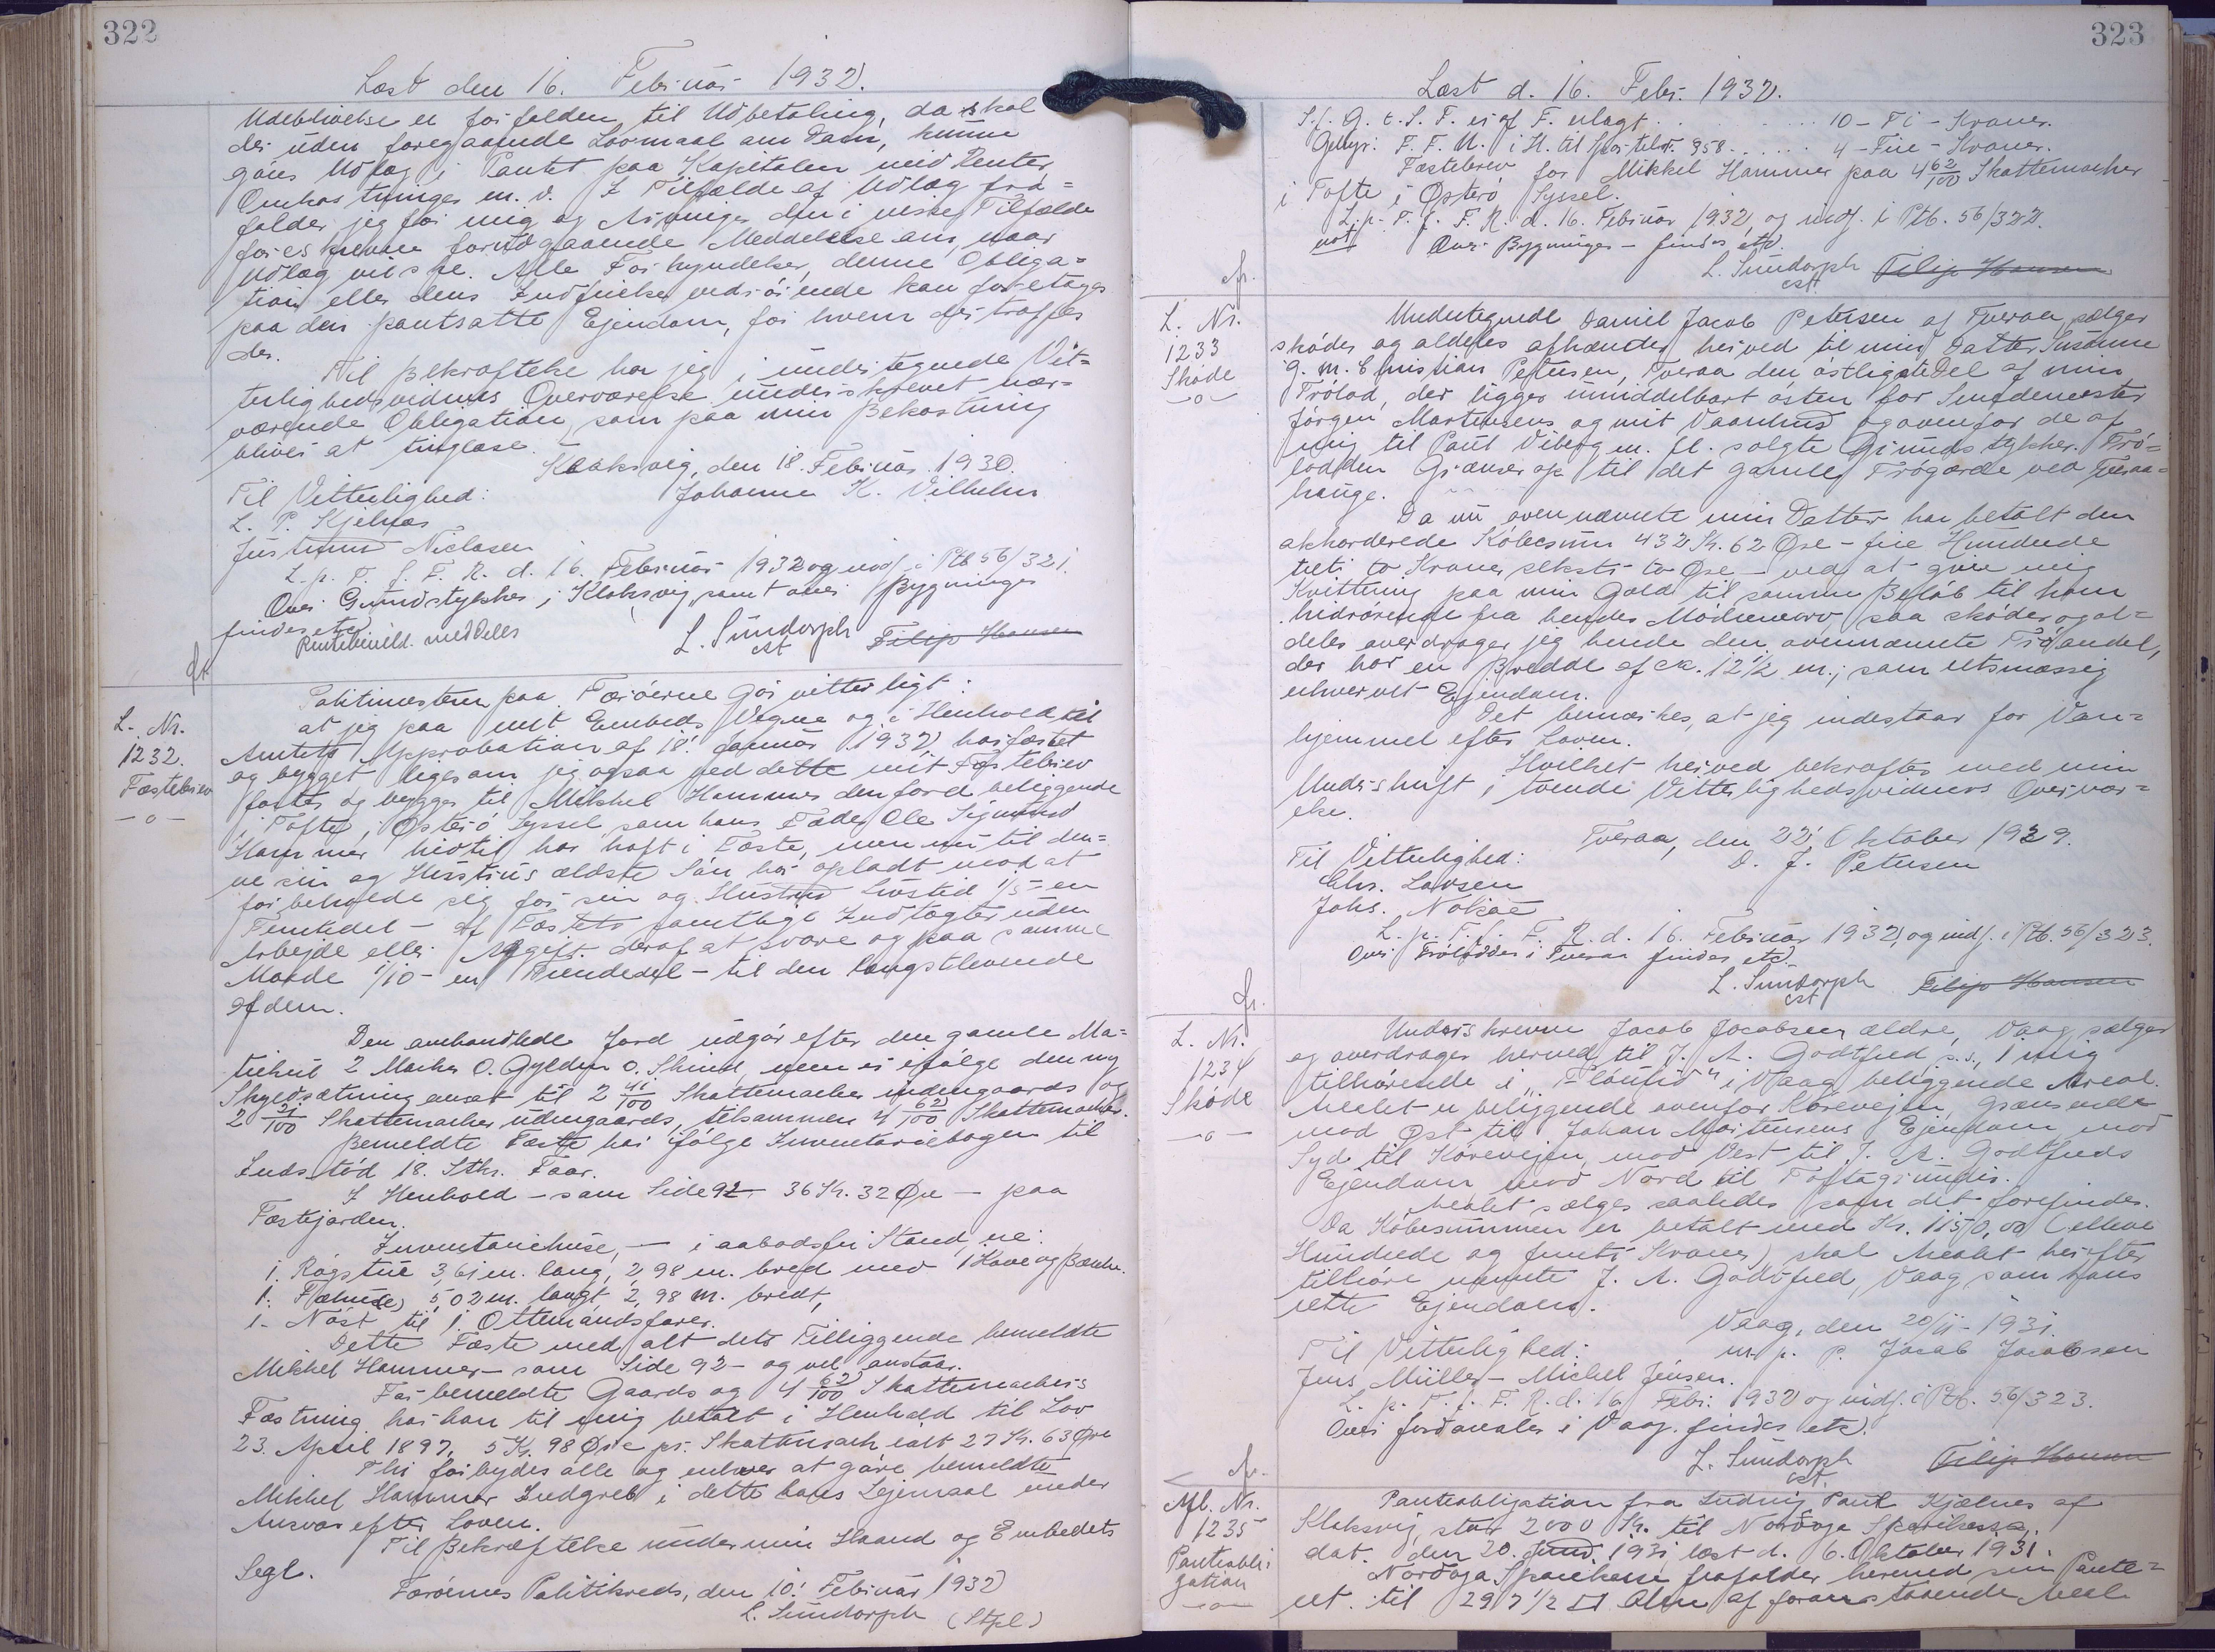 322
Læst den 16. Februar 1932.
Udeblivelse er forfalden til Udbetaling, da skal
der uden foregaaende Lovmaal om Dom, kunne
gøres Udlæg i Pantet paa Kapitalen med Renter,
Omkostninger m. v. I Tilfælde af Udlæg fra=
falder jeg for mig og Arvinger den i visse Tilfælde
foreskrevne forudgaaende Meddelelse om, naar
Udlæg vil ske. Alle Forkyndelser, denne Obliga=
tion eller dens Indfrielse vedrørende kan foretages
paa den pantsatte Ejendom, for hvem der træffes
der.
Til Bekræftelse har jeg i undertegnede Vit=
terlighedsvidners Overværelse underskrevet nær=
værende Obligation, som paa min Bekostning
bliver at tinglæse.
Klaksvig, den 18. Februar 1930.
Til Vitterlighed: Johanne K. Vilhelm
L. P. Kjelnæs
Justinus Niclasen
L. p. T. f. F. R. d. 16. Februar 1932 og indf. i Ptb 56/321.
Over Grundstykker i Klaksvig samt over Bygninger
findes etc.
Rentebevild. meddeles L. Sundorph Filip Hansen
cst
fr.
L. Nr.
1232.
Fæstebrev
—o—
Politimesteren paa Færøerne Gør vitterligt:
at jeg paa mit Embeds Vegne og i Henhold til
Amtets Approbation af 18. Januar 1932 har fæstet
og bygget ligesom jeg ogsaa ved dette mit Fæstebrev
fæster og bygger til Mikkel Hammer den Jord beliggende
i Tofte, Østerø Syssel som hans Fader Ole Sigmund
Hammer hidtil har haft i Fæste, men nu til den=
ne sin og Hustrus ældste Søn har opladt mod at
forbeholde sig for sin og Hustrus Livstid 1/5 - en
Femtedel - af Fæstets samtlige Indtægter uden
Arbejde eller Afgift deraf at svare og paa samme
Maade 1/10 - en Tiendedel - til den længstlevende
af dem.
Den omhandlede Jord udgør efter den gamle Ma=
trikul 2 Marker 0. Gylden 0. Skind, men er ifølge den ny
Skyldsætning ansat til 2 41/100 Skattemarker indengaards og
2 21/100 Skattemarker udengaards, tilsammen 4 62/100 Skattemarker.
Bemeldte Fæste har ifølge Inventariebogen til
Indstød 18. Stk. Faar.
I Henhold - som Side 92 - 36 Kr. 32 Øre - paa
Fæstejorden.
Inventariehuse, - i aabodsfri Stand, ere:
1. Røgstue 3,61 m. lang, 2,98 m. bred med 1 Kove og Bænke.
1. Fæhus, 5,02 m. langt, 2,98 m. bredt,
1. Nøst til 1 Ottemandsfarer.
Dette Fæste med alt dets Tilliggende bemeldte
Mikkel Hammer - som Side 92 - og vel anstaar.
For bemeldte Gaards og 4 62/100 Skattemarkers
Fæstning har han til mig betalt i Henhold til Lov
23. April 1897, 5 Kr. 98 Øre pr. Skattemark, ialt 27 Kr. 63 Øre
Thi forbydes alle og enhver at gøre bemeldte
Mikkel Hammer Indgreb i dette hans Lejemaal under
Ansvar efter Loven.
Til Bekræftelse under min Haand og Embedets
Segl.
Færøernes Politikreds, den 10. Februar 1932
L. Sundorph (Stpl.)
323
Læst d. 16. Febr. 1932.
S. f. G. t. S. T. er af F. erlagt . . . . . 10 - Ti - Kroner.
Gebyr: F. F. U. i H. til Sportelrt. 958 . . . . . 4 - Fire - Kroner.
Fæstebrev for Mikkel Hammer paa 4 62/100 Skattemarker
i Tofte i Østerø Syssel.
L. p. T. f. F. R. d. 16. Februar 1932, og indf. i Ptb. 56/322.
not Over Bygninger - findes etc.
L. Sundorph Filip Hansen
cst.
fr.
L. Nr.
1233
Skøde
—o—
Undertegnede Daniel Jacob Petersen af Tveraa sælger
skøder og aldeles afhænder herved til min Datter Susanne
g. m. Christian Petersen, Tveraa den østligste Del af min
Trølod, der ligger umiddelbart østen for Smedemester
Jørgen Mortensens og mit Vaanhus og ovenfor de af
mig til Poul Viberg m. fl. solgte Grundstykker. Trø=
lodden Grænser op til det gamle Trøgærde ved Tveraa=
hauge.
Da nu ovennævnte min Datter har betalt den
akkorderede Købesum 432 Kr. 62 Øre - fire Hundrede
treti to Kroner seksti to Øre - ved at give mig
Kvittering paa min Gæld til samme Beløb til ham
hidrørende fra hendes Mødrenearv saa skøder og al=
deles overdrager jeg hende den ovennævnte Trøandel,
der har en Bredde af ca. 12 1/2 m., som retsmæssig
erhvervet Ejendom.
Det bemærkes, at jeg indestaar for Van=
hjemmel efter Loven.
Hvilket herved bekræftes med min
Underskrift i tvende Vitterlighedsvidners Overvær=
else.
Tveraa, den 22. Oktober 1929.
Til Vitterlighed: D. J. Petersen
Chr. Larsen
Johs. Nolsøe
L. p. T. f. F. R. d. 16. Februar 1932, og indf. i Ptb. 56/323.
Over Trølodder i Tveraa findes etc.
L. Sundorph Filip Hansen
cst
fr.
L. Nr.
1234
Skøde
—o—
Underskrevne Jacob Jacobsen ældre, Vaag sælger
og overdrager herved til J. A. Godtfred s. s., 1 mig
tilhørende i " i Vaag beliggende Areal.
Arealet er beliggende ovenfor Kørevejen, grænsende
mod Øst til Johan Mortensens Ejendom mod
Syd til Kørevejen, mod Vest til J. A. Godtfreds
Ejendom mod Nord til Toftagrundir.
Arealet sælges saaledes som det forefindes.
Da Købesummen er betalt med Kr. 1150,00 (elleve
Hundrede og femti Kroner) skal Arealet herefter
tilhøre nævnte J. A. Godtfred, Vaag som hans
rette Ejendom.
Vaag, den 20/11 - 1931.
Til Vitterlighed: m. p. P. Jacob Jacobsen
Jens Müller - Michel Jensen.
L. p. T. f. F. R. d. 16. Febr. 1932 og indf. i Ptb. 56/323.
Over Jordarealer i Vaag findes etc.
L. Sundorph Filip Hansen
cst.
fr.
Afl. Nr.
1235
Panteobli
gation
—o—
Panteobligation fra Ludvig Poul Kjælnes af
Klaksvig, stor 2000 Kr. til Norðoya Sparikassa,
dat. den 20. Juni 1931 læst d. 6. Oktober 1931.
Norðoya Sparikassi frafalder herved sin Pante=
ret til 297 1/2 □ Alen af foranstaaende Areal